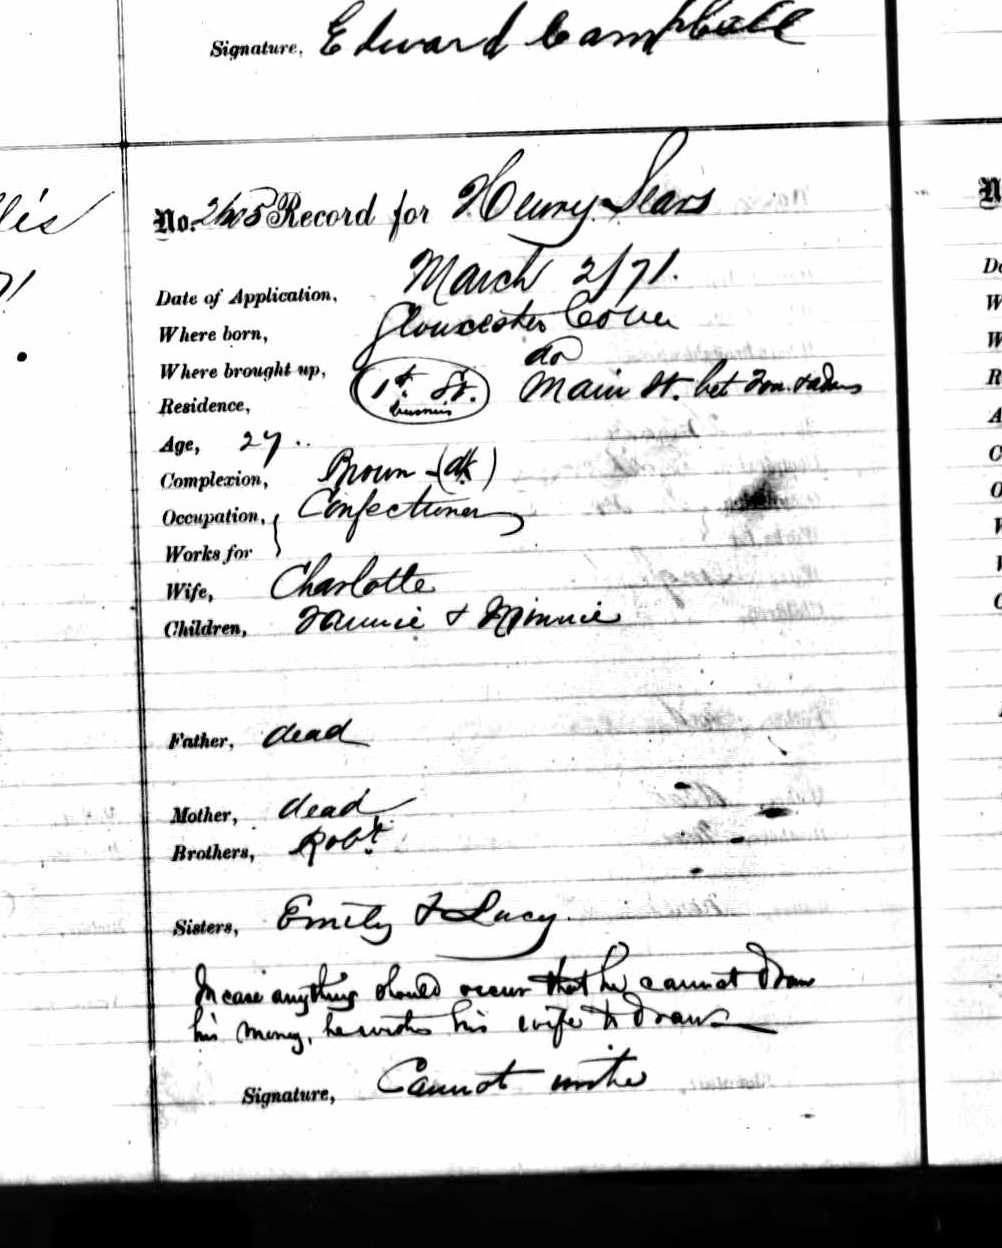 Signature, Edward Campbell
No. Record for Henry Sears
Date of Application, March 2/71.
Where born, Gloucester Co Va
Where brought up, do
Residence, 1st St. business Main St. bet
Age, 27
Complexion, Brown (dk)
Occupation, Confectioner
Works for
Wife, Charlotte
Children, Fannie & Minnie
Father, dead
Mother, dead
Brothers, Robt
Sisters, Emily & Lucy.
In case anything should occur that he cannot draw
his money, he wishes his wife to draw
Signature, Cannot write